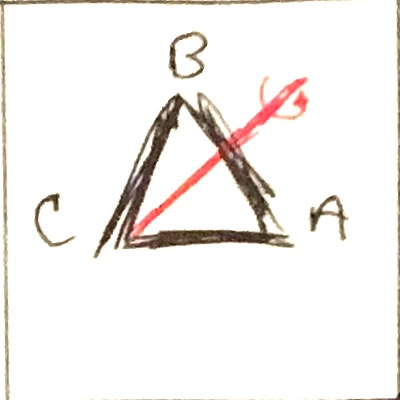 B
C A